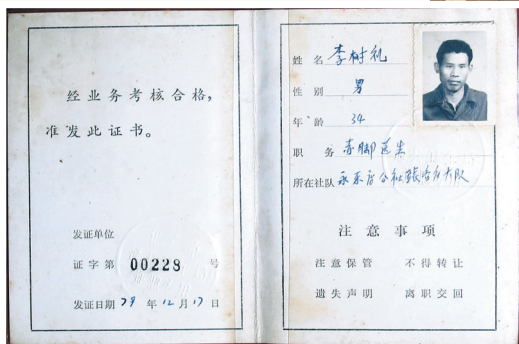 经业务考核合格，
准发此证书。
发证单位
证字第 00228 号
发证日期 79 年 12 月 17 日
姓名 李树礼
性别 男
年龄 34
职务 赤脚医生
所在社队 永乐店公社张各庄大队
注意事项
注意保管 不得转让
遗失声明 离职交回